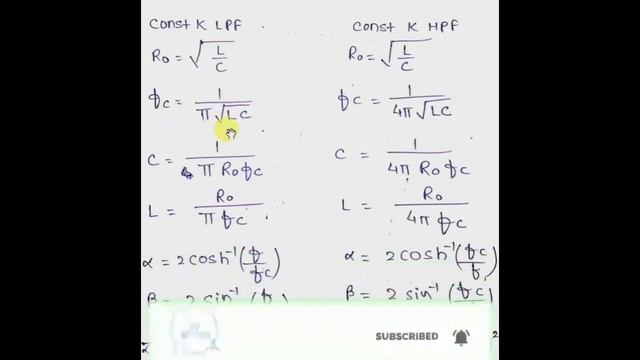 Const K LPF
R₀ = √(L/C)
fc = 1/(π√LC)
C = 1/(π R₀ fc)
L = R₀/(π fc)
α = 2cosh⁻¹(f/fc)
β = 2 sin⁻¹(f/
Const K HPF
R₀ = √(L/C)
fc = 1/(4π√LC)
C = 1/(4π R₀ fc)
L = R₀/(4π fc)
α = 2cosh⁻¹(fc/f)
β = 2 sin⁻¹(fc/
SUBSCRIBED
2